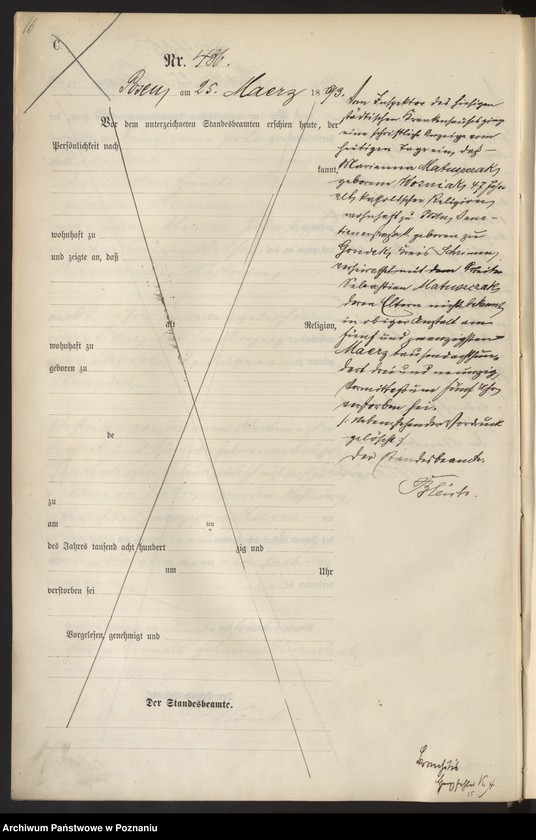 16
C
Nr. 436.
Posen, am 25. Maerz 1893.
Vor dem unterzeichneten Standesbeamten erschien heute, der
Persönlichkeit nach
kannt,
wohnhaft zu
und zeigte an, daß
alt Religion,
wohnhaft zu
geboren zu
de
zu
am ten
des Jahres tausend acht hundert zig und
um Uhr
verstorben sei
Vorgelesen, genehmigt und
Der Standesbeamte.
Vom Inspektor des hiesigen
städtischen Krankenhauses ging
eine schriftliche Anzeige vom
heutigen Tage ein, daß
Marianna Matuszczak,
geborene Wozniak, 47 Jahre
alt, katholischer Religion,
wohnhaft zu Posen, geboren zu
Kreis Schrimm,
verheirathet mit dem Arbeiter
Sebastian Matuszczak,
deren Eltern nicht bekannt,
in obiger Anstalt am
fünf und zwanzigsten
Maerz tausend acht hun-
dert drei und neunzig
Vormittags um fünf Uhr
verstorben sei.
/: Nebenstehender Vordruck
gelöscht :/
Der Standesbeamte.
Bronchitis
Archiwum Państwowe w Poznaniu